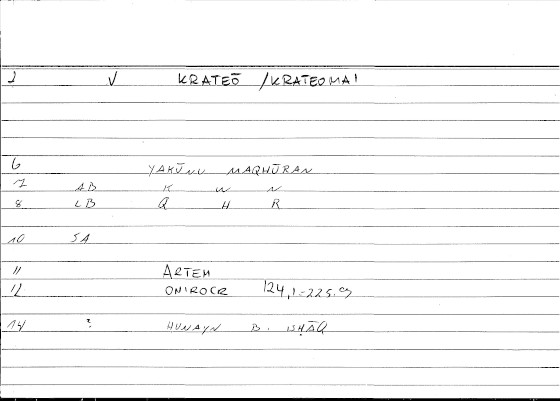 2 V KRATEŌ /KRATEOMAI
6 YAKŪNU MAQHŪRAN
7 AB K W N
8 LB Q H R
10 SA
11 ARTEM
12 ONIROCR 124,1-225.
14 ? HUNAYN B. ISḤĀQ